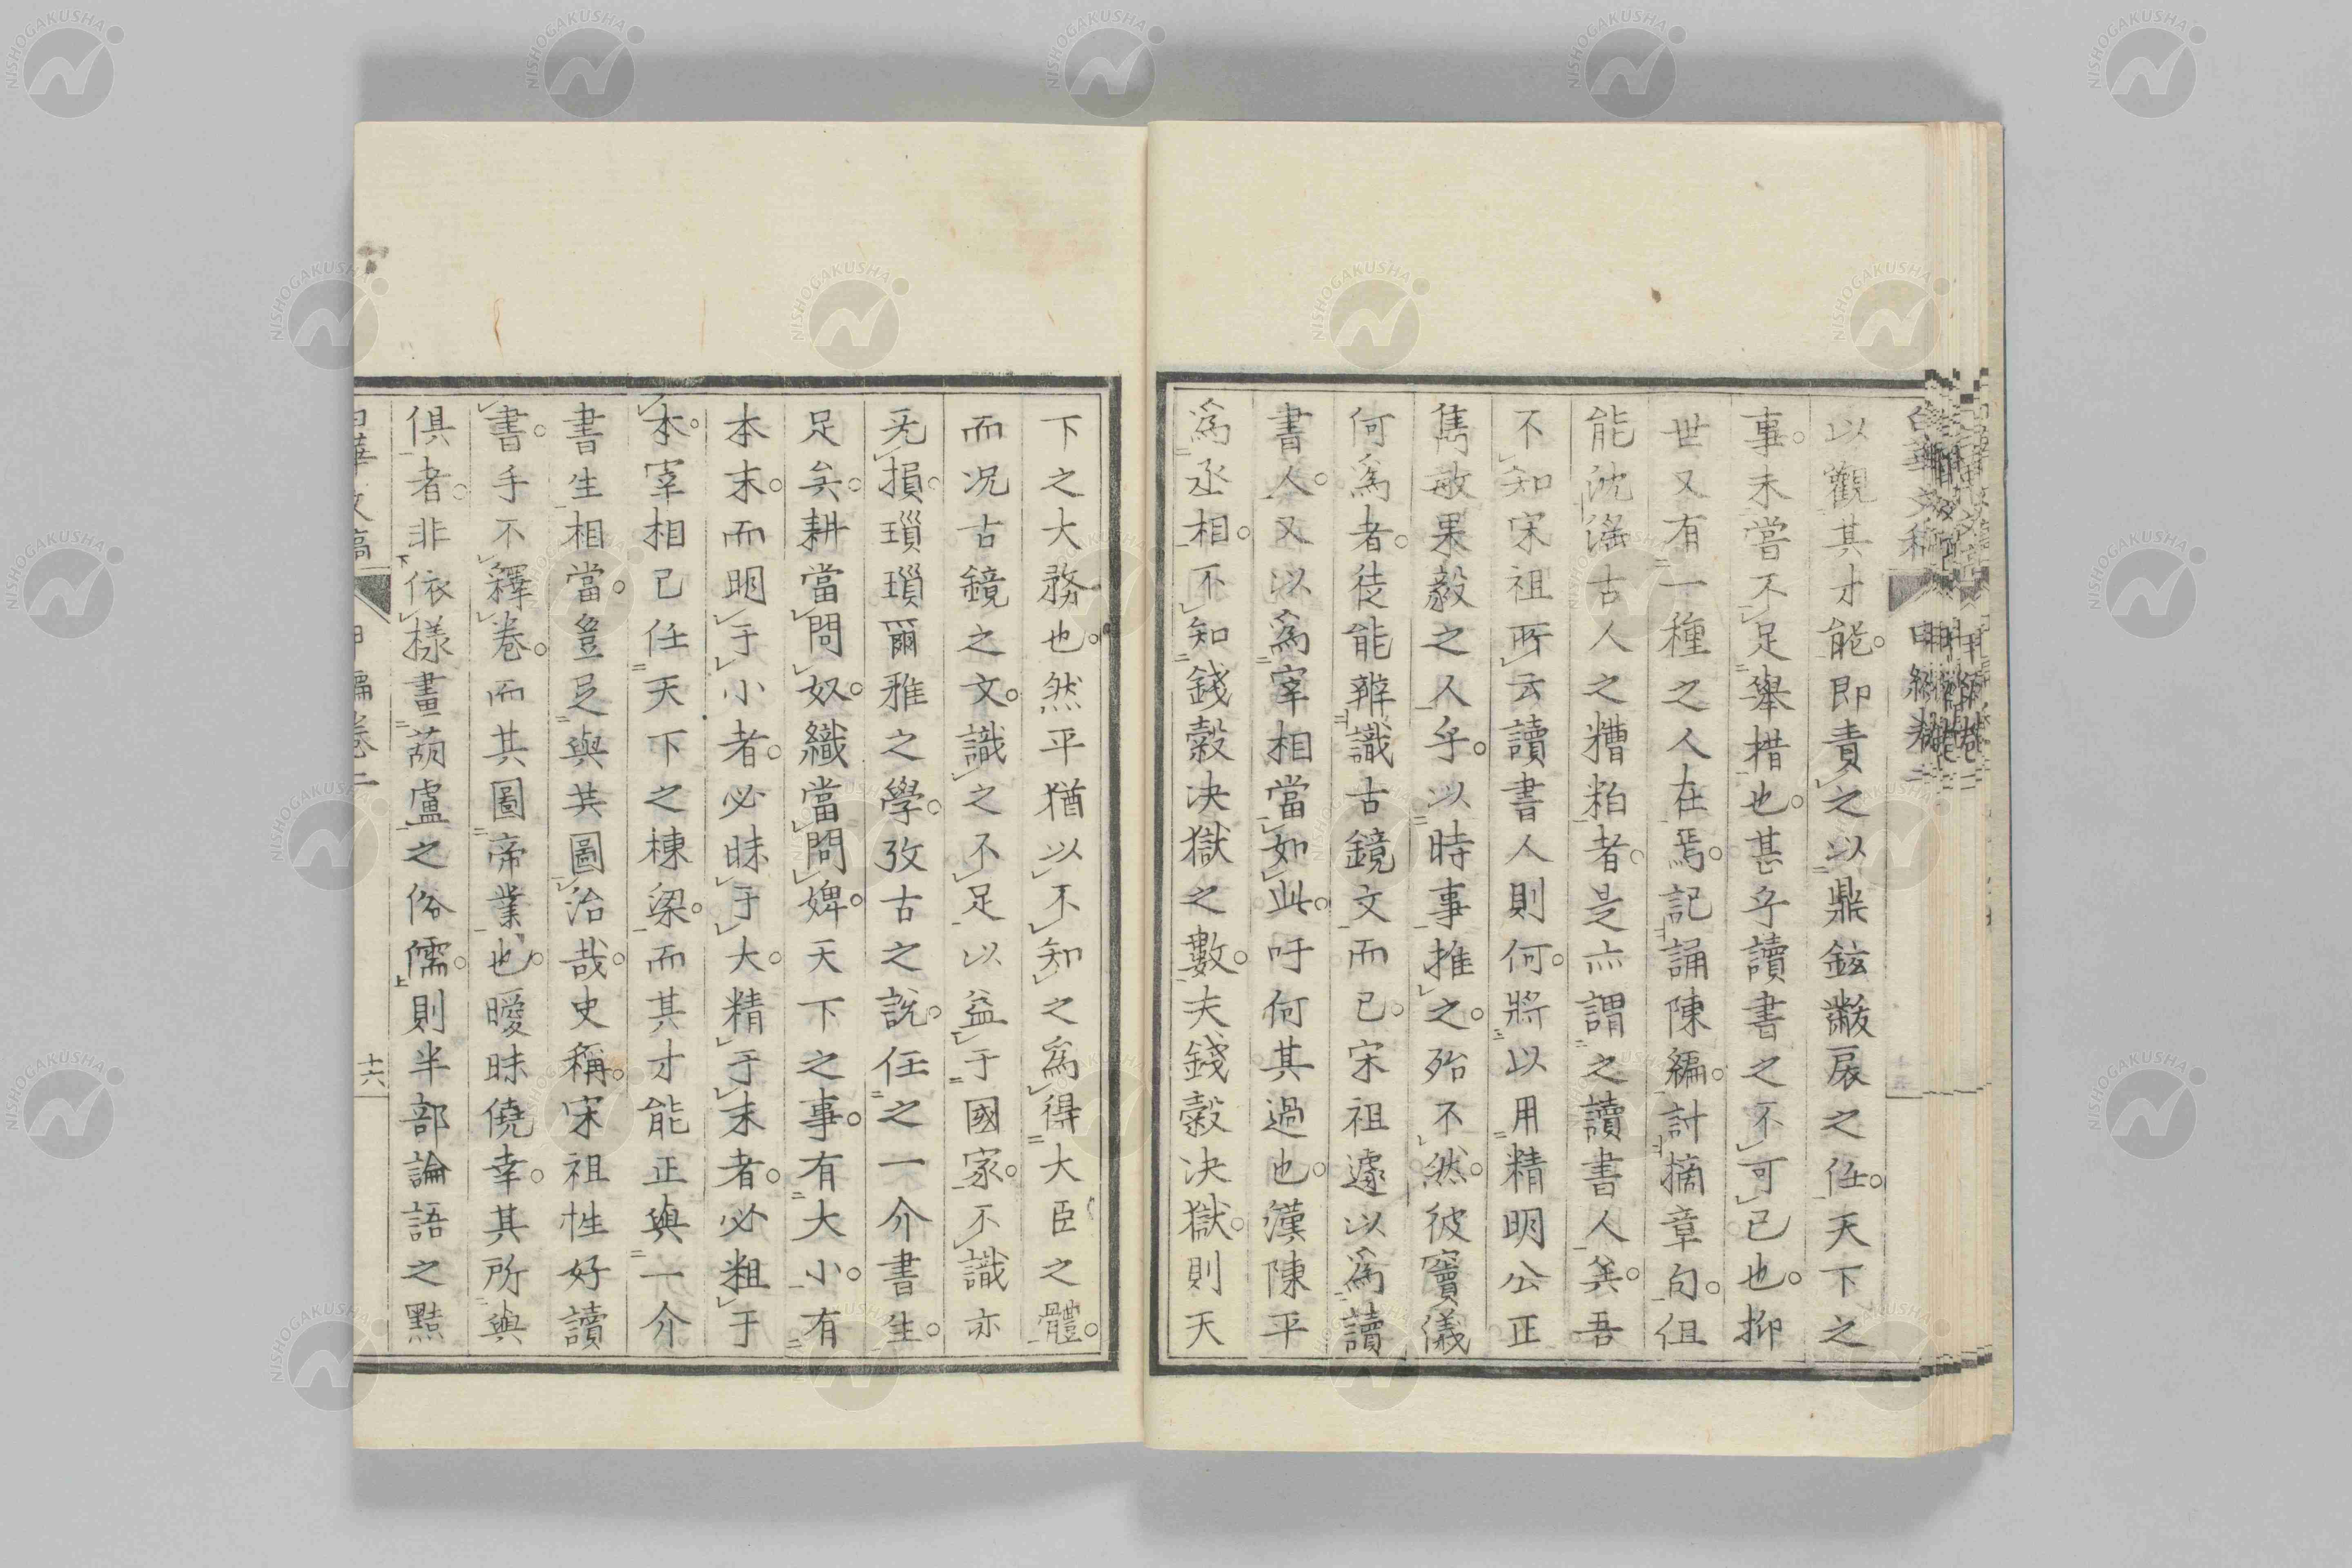 以觀其才能。即責之以鼎鉉黻扆之任。天下之
事。未嘗不足舉措也。甚乎讀書之不可已也。抑
世又有一種之人在焉。記誦陳編。計摘章句。但
能沈滛古人之糟粕者。是亦謂之讀書人矣。吾
不知宋祖所云讀書人則何。將以用精明公正
雋敏果毅之人乎。以時事推之。殆不然。彼竇儀
何爲者。徒能辨識古鏡文而已。宋祖遽以爲讀
書人。又以爲宰相當如此。吁何其過也。漢陳平
爲丞相。不知錢穀決獄之數。夫錢穀決獄。則天
下之大務也。然平猶以不知之爲得大臣之體。
而况古鏡之文。識之不足以益于國家。不識亦
无損。瑣瑣爾雅之學。攷古之說。任之一介書生。
足矣。耕當問奴。織當問婢。天下之事。有大小。有
本末。而明于小者。必昧于大。精于末者。必粗于
本。宰相已任天下之棟梁。而其才能正與一介
書生相當。豈足與共圖治哉。史稱。宋祖性好讀
書。手不釋卷。而其圖帝業也。曖昧僥幸。其所與
俱者。非依樣畫葫盧之俗儒。則半部論語之黠
文稿 編卷二 十六
NISHOGAKUSHA